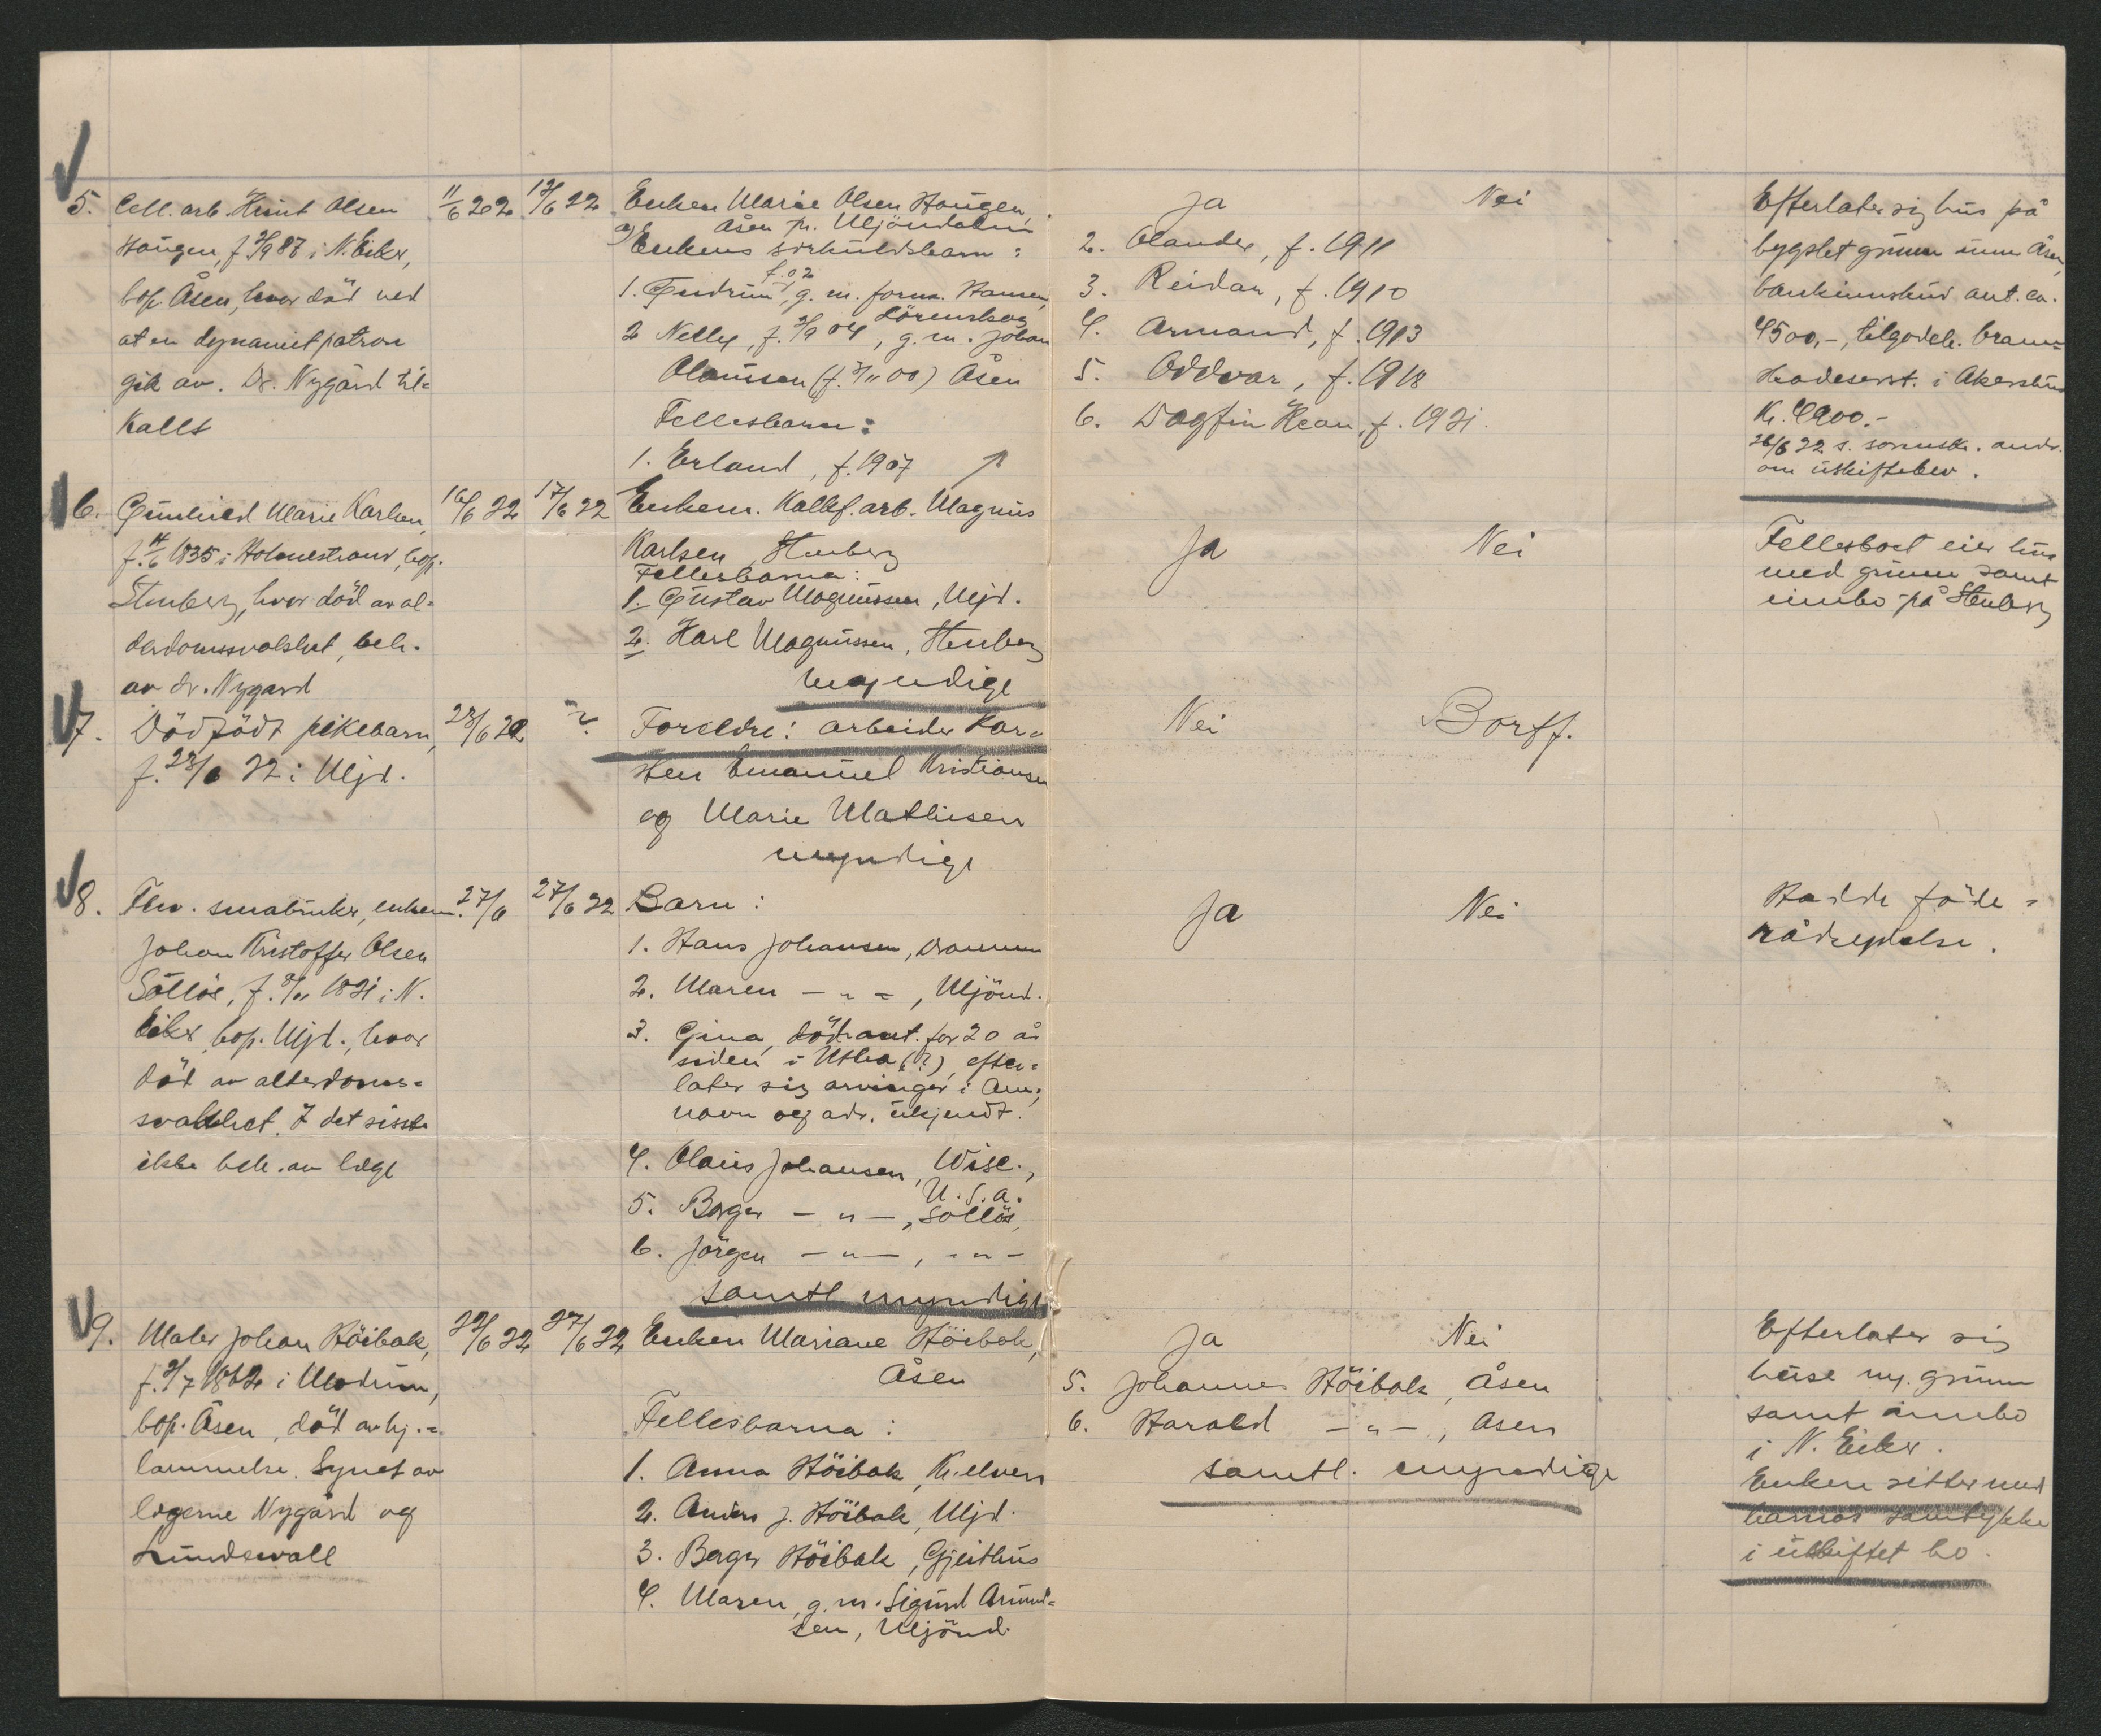 5. Cell. arb. Knut Olsen
Haugen, f. 2/9 87 i N. Eiker,
bop. Åsen, hvor död ved
at en dynamitpatron
gik av. Dr. Nygård til-
kallt
11/6 22
12/6 22
Enken Marie Olsen Haugen,
Åsen pr. Mjöndalen
a) Enkens særkuldsbarn:
f. 02
1. Gudrun, g. m. form. Hansen,
Lörenskog
2 Nelly, f. 2/9 04, g. m. Johan
Olaussen (f. 3/11 00) Åsen
Fellesbarn:
1. Erland, f. 1907
Ja
Nei
2. Olander, f. 1911
3. Reidar, f. 1910
4. Armand, f. 1913
5. Oddvar, f. 1918
6. Dagfin Kean, f. 1921.
Efterlater sig hus på
bygslet grunn inn Åsen,
bankinnskud ant. ca.
4500,-, tilgodeh. brann-
skadeserst. i Akershus
Kr. 4900.-
26/6 22 s. sorensk. andr.
om uskiftebev.
6. Gunhild Marie Karlsen,
f. 14/6 1835 i Holmestrand, bop.
Stenberg, hvor död av al-
derdomssvakhet, beh.
av dr. Nygård
16/6 22
17/6 22
Enkem. Kallf. arb. Magnus
Karlsen, Stenberg
Fellesbarna:
1. Gustav Magnussen, Mjd.
2. Karl Magnussen, Stenberg
myndige
Ja
Nei
Fellesboet eier hus
med grunn samt
innbo på Stenberg
7. Dödfödt pikebarn,
f. 23/6 22 i Mjd.
23/6 22
?
Foreldre: arbeider Kar-
sten Emanuel Kristiansen
og Marie Mathisen
myndige
Nei
Bortf.
8. Fhv. småbruker, enkem.
Johan Kristoffer Olsen
Solløs, f. 2/11 1831 i N.
Eiker, bop. Mjd., hvor
död av alderdoms-
svakhet. I det siste
ikke beh. av læge
27/6
27/6 22
Barn:
1. Hans Johansen, Drammen
2. Maren - " -, Mjönd.
3. Gina, död ant. for 20 år
siden i Utha (?), efter-
later sig arvinger i Am.,
navn og adr. ukjendt.
4. Olaus Johansen, Wisc.,
U.S.A.
5. Borger - " -, Solløs,
6. Jörgen - " -, - " -
samtl. myndige
Ja
Nei
Hadde föde-
rådsydelse.
9. Maler Johan Höibak,
f. 3/7 1862 i Modum,
bop. Åsen, död av hj.-
lammelse. Synet av
lægerne Nygård og
Lundevall
22/6 22
27/6 22
Enken Mariane Höibak,
Åsen
Fellesbarna:
1. Anna Höibak, Kr.elven
2. Anders J. Höibak, Mjd.
3. Borger Höibak, Gjeithus
4. Maren, g. m. Sigurd Amund-
sen, Mjönd.
Ja
Nei
5. Johannes Höibak, Åsen
6. Harald - " -, Åsen
samtl. myndige
Efterlater sig
huse m. grunn
samt innbo
i N. Eiker.
Enken sitter med
barnas samtykke
i uskiftet bo.